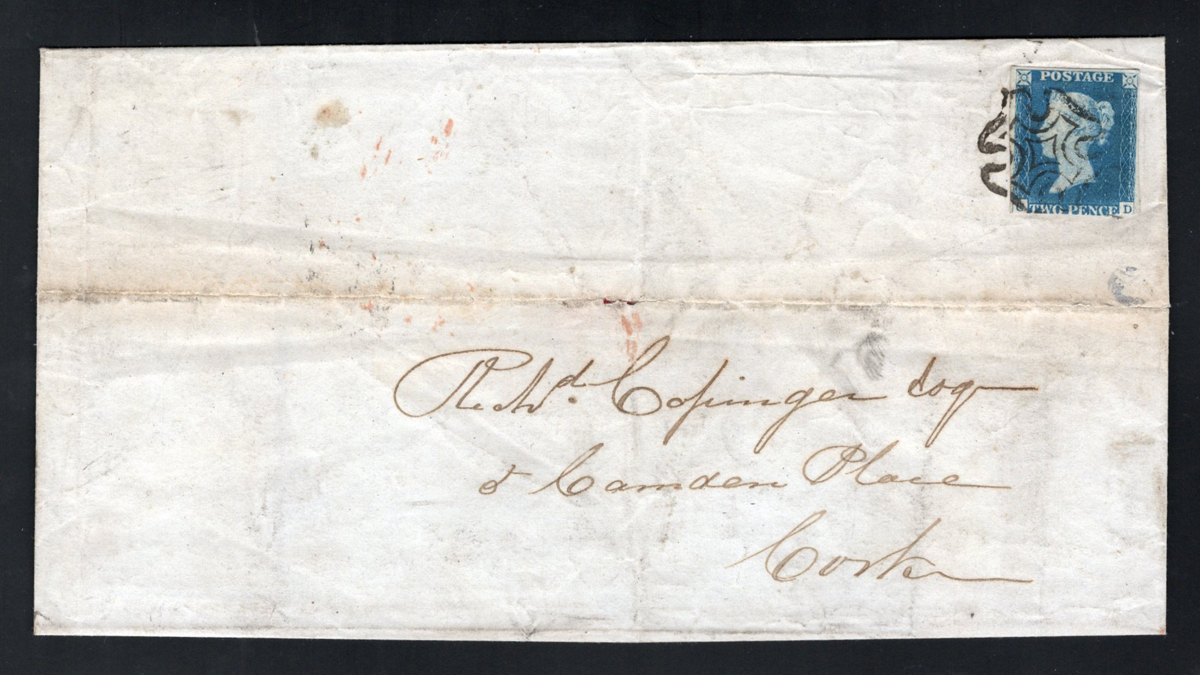 POSTAGE
TWO PENCE D
Richd. Copinger Esq
5 Camden Place
Cork